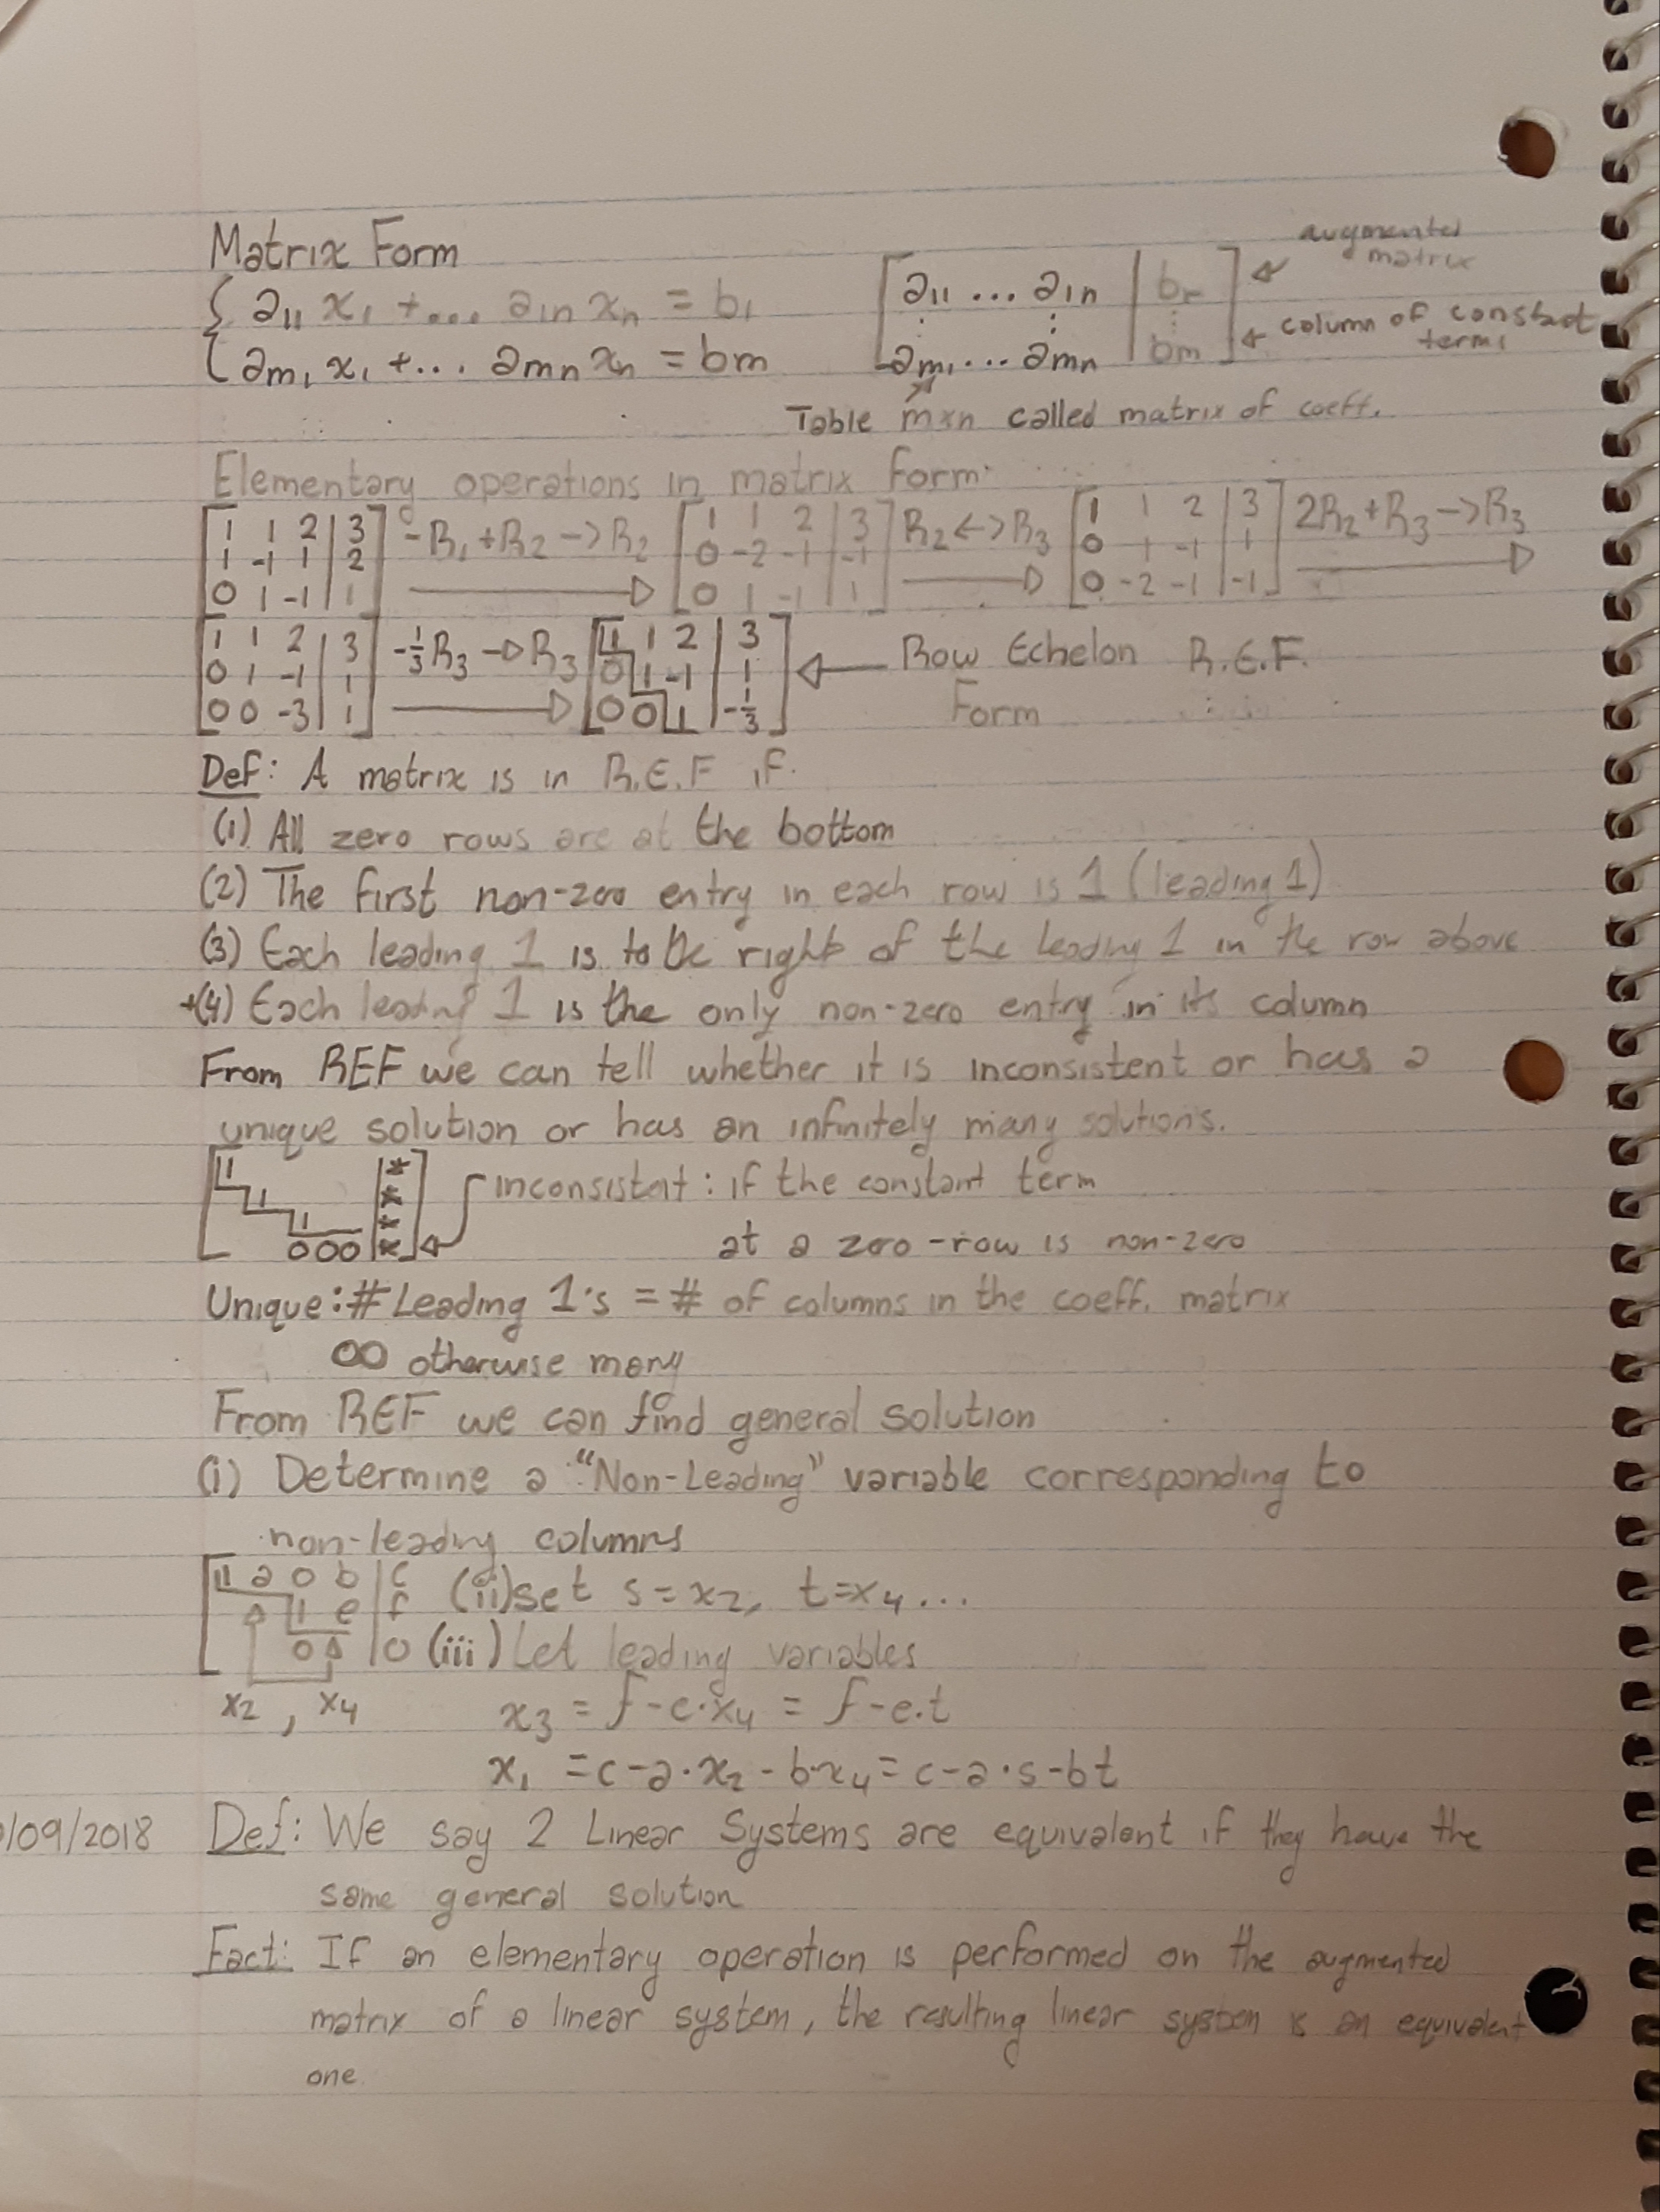 Matrix Form
{ a11 x1 + ... a1n xn = b1
{ am1 x1 + ... amn xn = bm
[ a11 ... a1n | br ] augmented matrix
⋮ ⋮ | ⋮
[ am1 ... amn | bm ] column of constant terms
Table m×n called matrix of coeff.
Elementary operations in matrix form
[ 1 1 2 | 3 ] -R1+R2->R2 [ 1 1 2 | 3 ] R2<->R3 [ 1 1 2 | 3 ] 2R2+R3->R3
[ 1 -1 1 | 2 ] [ 0 -2 -1 | -1 ] [ 0 1 -1 | 1 ]
[ 0 1 -1 | 1 ] [ 0 1 -1 | 1 ] [ 0 -2 -1 | -1 ]
[ 1 1 2 | 3 ] -1/3 R3 -> R3 [ 1 1 2 | 3 ] <- Row Echelon R.E.F.
[ 0 1 -1 | 1 ] [ 0 1 -1 | 1 ] Form
[ 0 0 -3 | 1 ] [ 0 0 1 | -1/3 ]
Def: A matrix is in R.E.F if.
(1) All zero rows are at the bottom
(2) The first non-zero entry in each row is 1 (leading 1)
(3) Each leading 1 is to the right of the leading 1 in the row above
+(4) Each leading 1 is the only non-zero entry in its column
From REF we can tell whether it is inconsistent or has a
unique solution or has an infinitely many solutions.
[ 1 | * ] inconsistent: if the constant term
1 | *
1 | *
000 | * at a zero-row is non-zero
Unique: # Leading 1's = # of columns in the coeff. matrix
∞ otherwise many
From REF we can find general solution
(i) Determine a "Non-Leading" variable corresponding to
non-leading columns
[ 1 a 0 b | c (ii) set s=x2, t=x4...
1 e | f
0 | 0 (iii) Let leading variables
x2, x4 x3 = f-e·x4 = f-e.t
x1 = c-a·x2-b·x4 = c-a·s-bt
/09/2018 Def: We say 2 Linear Systems are equivalent if they have the
same general solution
Fact: If an elementary operation is performed on the augmented
matrix of a linear system, the resulting linear system is an equivalent
one